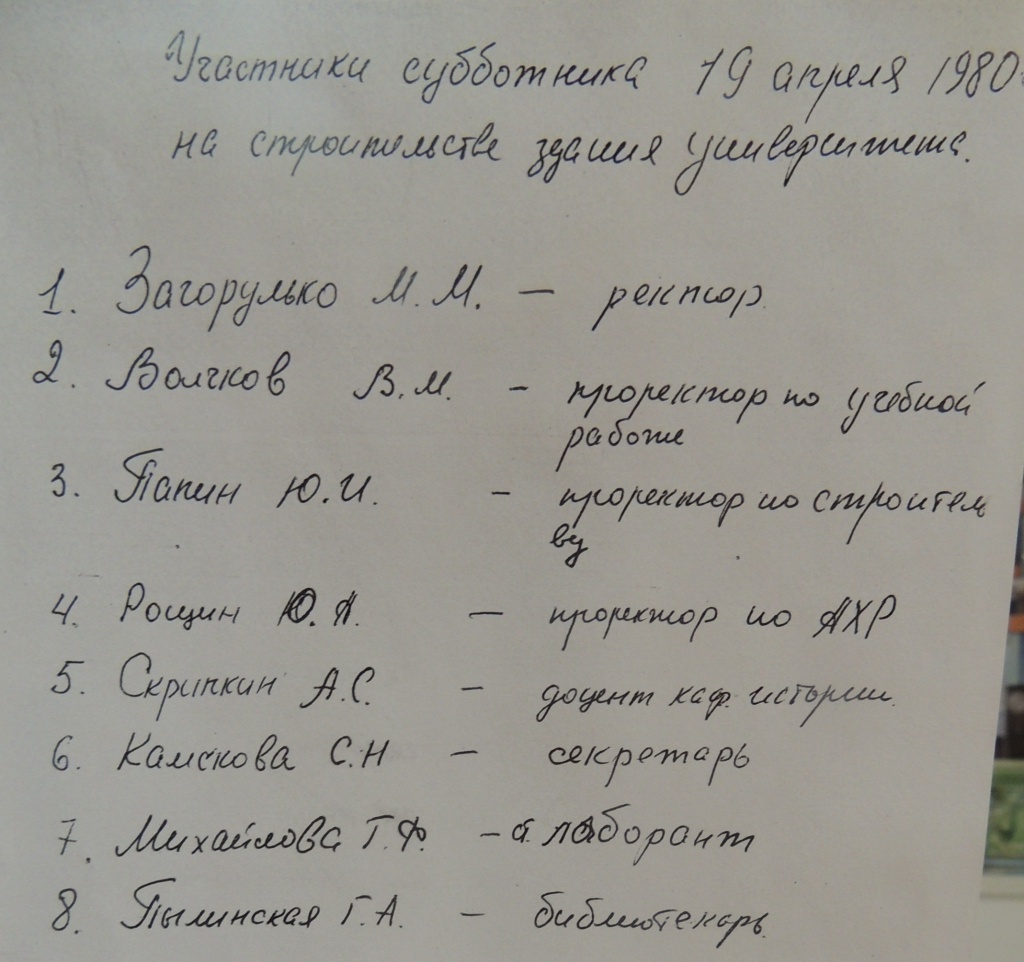 Участники субботника 19 апреля 1980
на строительстве здания университета.
1. Загорулько М.М. — ректор.
2. Волчков В.М. - проректор по учебной
работе
3. Папин Ю.И. - проректор по строитель
ву
4. Рощин Ю.А. — проректор по АХР
5. Скрипкин А.С. - доцент каф. истории.
6. Камскова С.Н - секретарь
7. Михайлова Г.Ф. - ст. лаборант
8. Пылинская Г.А. - библиотекарь.